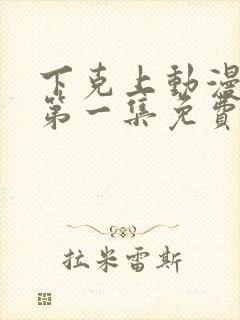 下克上動漫
第一集免費
拉米雷斯